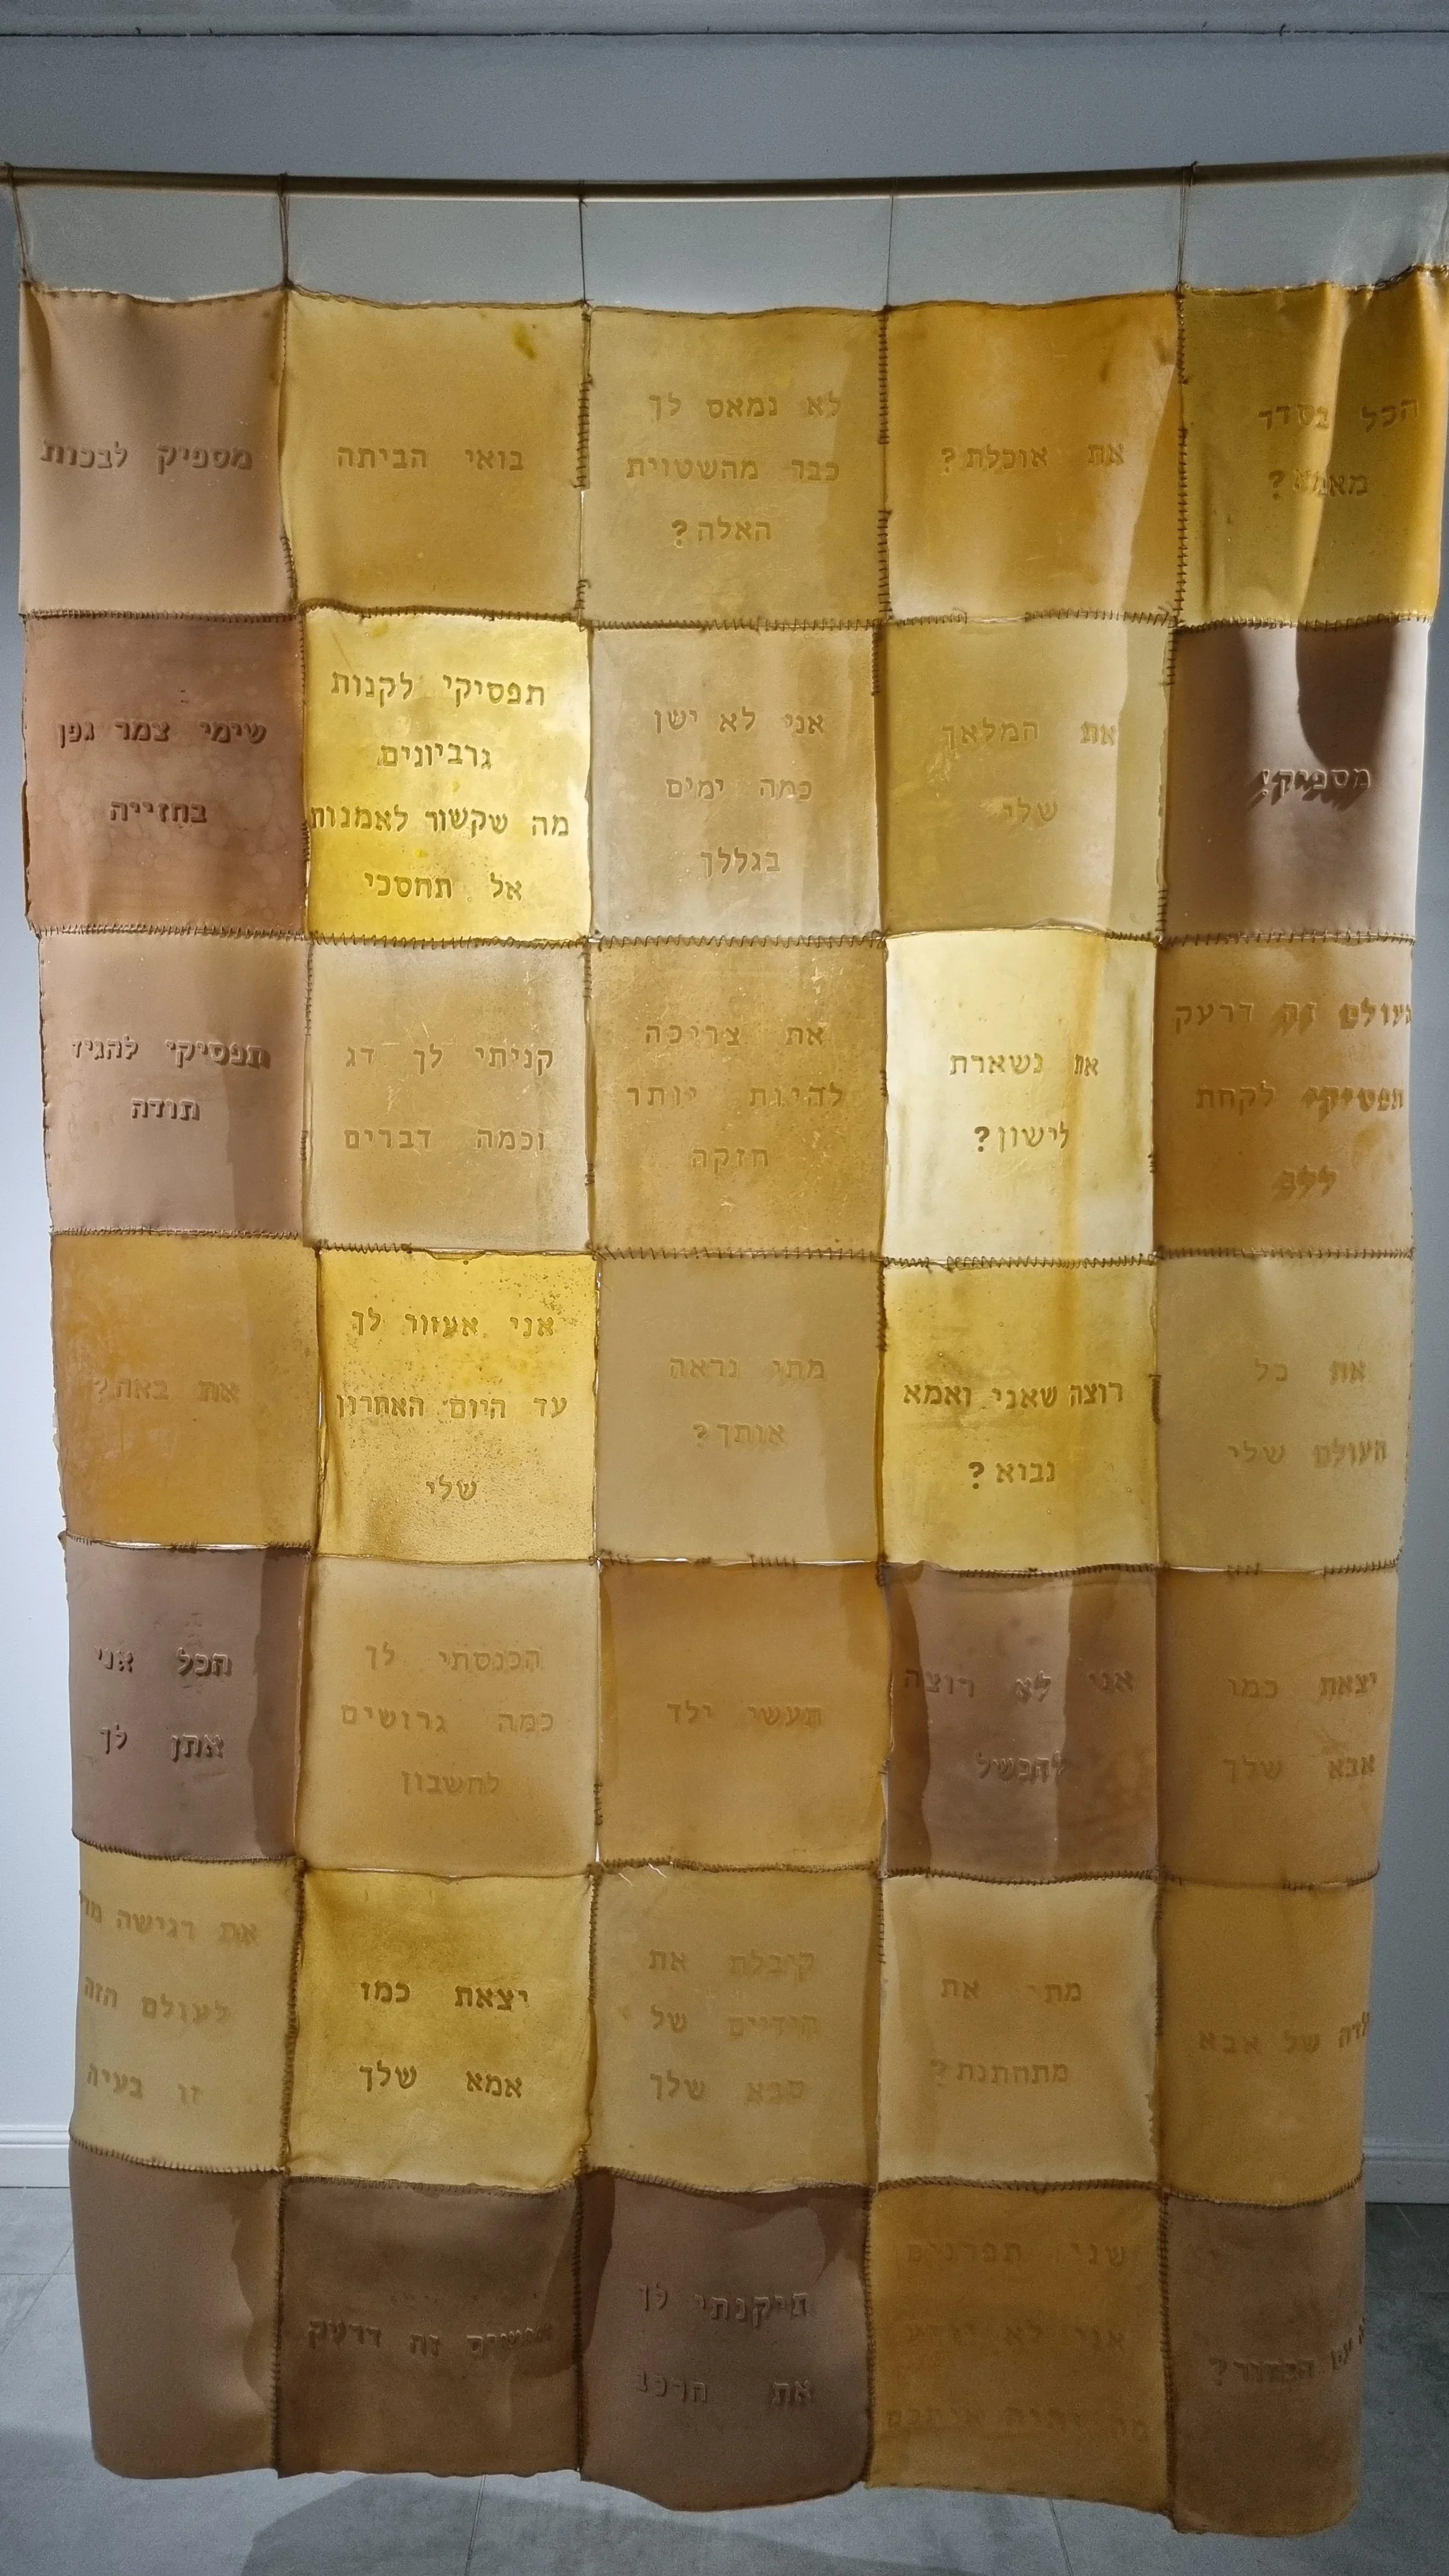 הכל בסדר
מאמא?
את אוכלת?
לא נמאס לך
כבר מהשטויות
האלה?
בואי הביתה
מספיק לבכות
מספיק!
את המלאך
שלי
אני לא ישן
כמה ימים
בגללך
תפסיקי לקנות
גרביונים
מה שקשור לאמנות
אל תחסכי
שימי צמר גפן
בחזייה
העולם זה דרעק
תפסיקי לקחת
ללב
את נשארת
לישון?
את צריכה
להיות יותר
חזקה
קניתי לך דג
וכמה דברים
תפסיקי להגיד
תודה
את כל
העולם שלי
רוצה שאני ואמא
נבוא?
מתי נראה
אותך?
אני אעזור לך
עד היום האחרון
שלי
את באה?
יצאת כמו
אבא שלך
אני לא רוצה
להכשיל
תעשי ילד
הכנסתי לך
כמה גרושים
לחשבון
הכל אני
אתן לך
של אבא
מתי את
מתחתנת?
קיבלת את
הידיים של
סבא שלך
יצאת כמו
אמא שלך
את רגישה
לעולם הזה
זו בעיה
שני תפרנים
אני לא יודע
מה יהיה איתכם
תיקנתי לך
את הרכב
זה דרעק